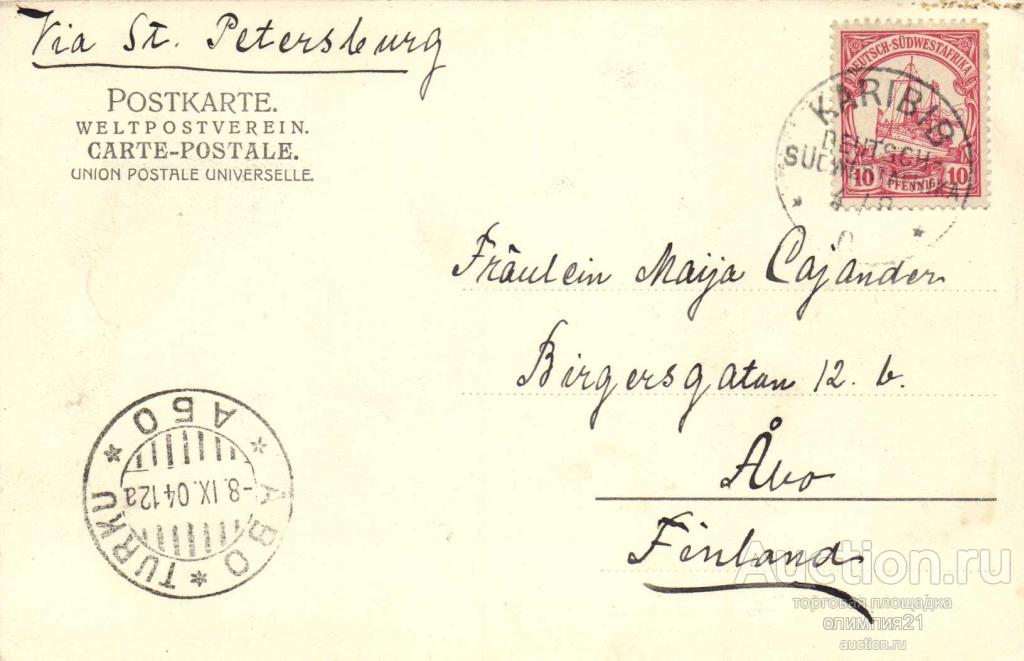 Via St. Petersburg
POSTKARTE.
WELTPOSTVEREIN.
CARTE-POSTALE.
UNION POSTALE UNIVERSELLE.
DEUTSCH-SÜDWESTAFRIKA
10 PFENNIG 10
KARIBIB
DEUTSCH-
Fräulein Maija Cajander
Birgersgatan 12. b.
Åbo
Finland
АБО
ABO
TURKU
-8.IX.04 12a
Auction.ru
торговая площадка
олимпия21
auction.ru